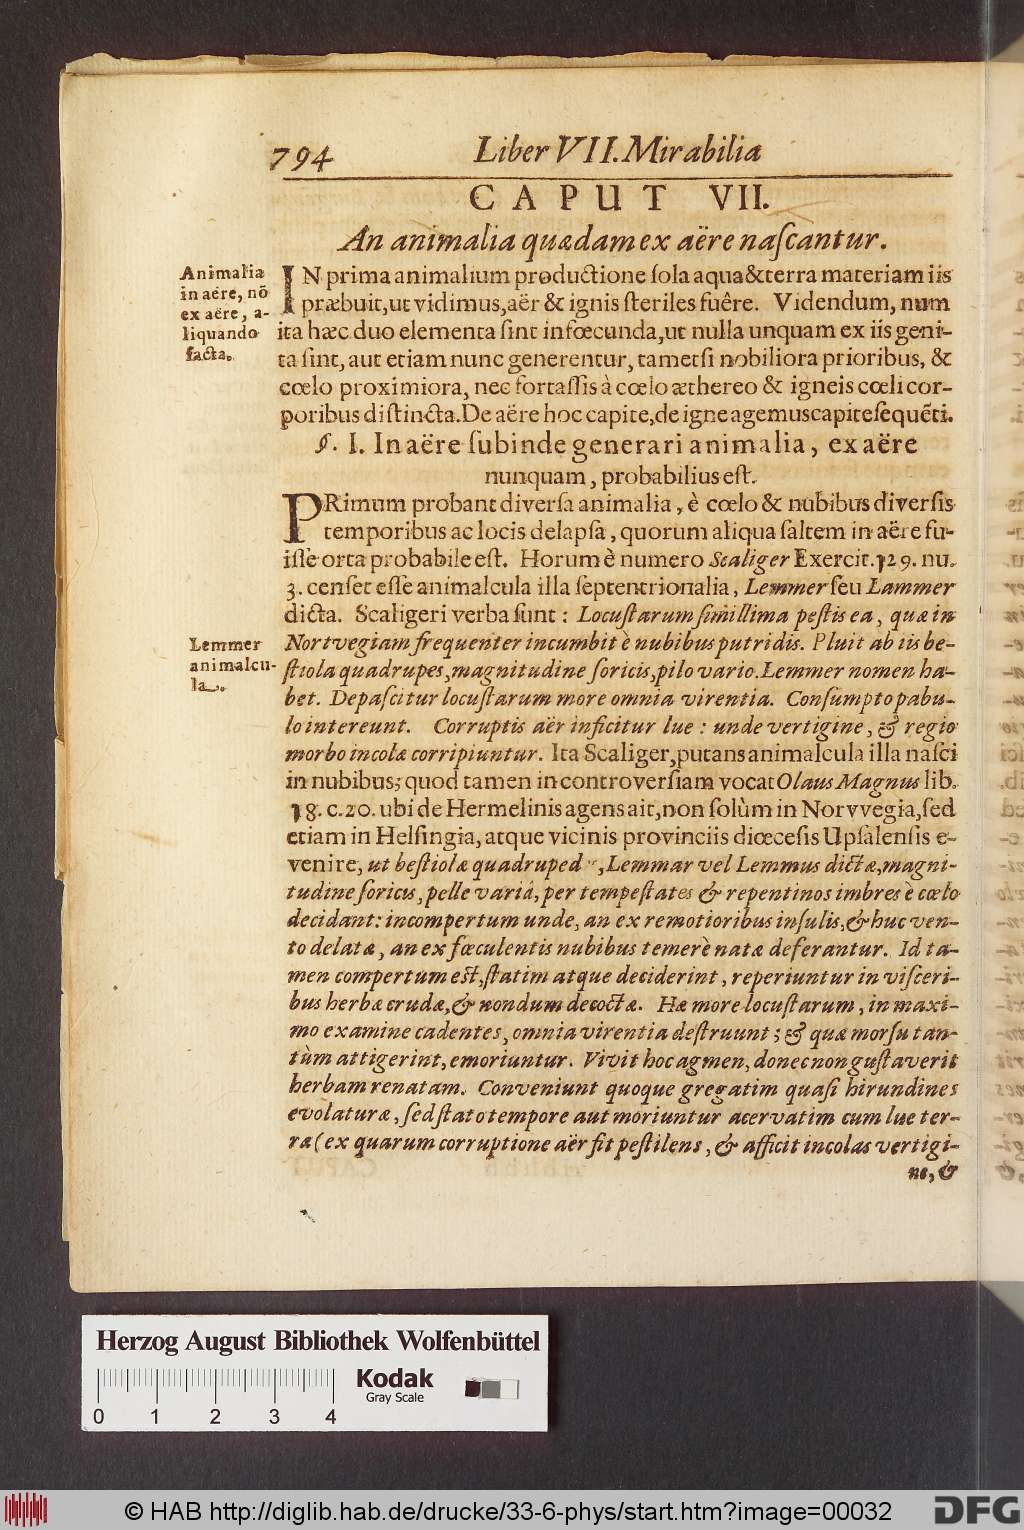 794
Liber VII. Mirabilia
CAPUT VII.
An animalia quædam ex aëre naſcantur.
Animalia
in aëre, nō
ex aëre, a-
liquando
facta.
IN prima animalium productione ſola aqua & terra materiam iis
præbuit, ut vidimus, aër & ignis ſteriles fuêre. Videndum, num
ita hæc duo elementa ſint infœcunda, ut nulla unquam ex iis geni-
ta ſint, aut etiam nunc generentur, tametſi nobiliora prioribus, &
cœlo proximiora, nec fortaſſis à cœlo æthereo & igneis cœli cor-
poribus diſtincta. De aëre hoc capite, de igne agemus capite ſequẽti.
§. I. In aëre ſubinde generari animalia, ex aëre
nunquam, probabilius eſt.
PRimum probant diverſa animalia, è cœlo & nubibus diverſis
temporibus ac locis delapſa, quorum aliqua ſaltem in aëre fu-
iſſe orta probabile eſt. Horum è numero Scaliger Exercit. 129. nu.
3. cenſet eſſe animalcula illa ſeptentrionalia, Lemmer ſeu Lammer
dicta. Scaligeri verba ſunt: Locuſtarum ſimillima peſtis ea, quæ in
Nortvegiam frequenter incumbit è nubibus putridis. Pluit ab iis be-
Lemmer
animalcu-
la.
ſtiola quadrupes, magnitudine ſoricis, pilo vario. Lemmer nomen ha-
bet. Depaſcitur locuſtarum more omnia virentia. Conſumpto pabu-
lo intereunt. Corruptis aër inficitur lue: unde vertigine, & regio
morbo incolæ corripiuntur. Ita Scaliger, putans animalcula illa naſci
in nubibus; quod tamen in controverſiam vocat Olaus Magnus lib.
18. c. 20. ubi de Hermelinis agens ait, non ſolùm in Norvvegia, ſed
etiam in Helſingia, atque vicinis provinciis diœceſis Upſalenſis e-
venire, ut beſtiolæ quadruped, Lemmar vel Lemmus dictæ, magni-
tudine ſoricis, pelle variâ, per tempeſtates & repentinos imbres è cœlo
decidant: incompertum unde, an ex remotioribus inſulis, & huc ven-
to delatæ, an ex fœculentis nubibus temerè natæ deferantur. Id ta-
men compertum eſt, ſtatim atque deciderint, reperiuntur in viſceri-
bus herbæ crudæ, & nondum decoctæ. Hæ more locuſtarum, in maxi-
mo examine cadentes, omnia virentia deſtruunt; & quæ morſu tan-
tùm attigerint, emoriuntur. Vivit hoc agmen, donec non guſtaverit
herbam renatam. Conveniunt quoque gregatim quaſi hirundines
evolaturæ, ſed ſtato tempore aut moriuntur acervatim cum lue ter-
ræ (ex quarum corruptione aër fit peſtilens, & afficit incolas vertigi-
ne, &
Herzog August Bibliothek Wolfenbüttel
Kodak
Gray Scale
0 1 2 3 4
© HAB http://diglib.hab.de/drucke/33-6-phys/start.htm?image=00032
DFG